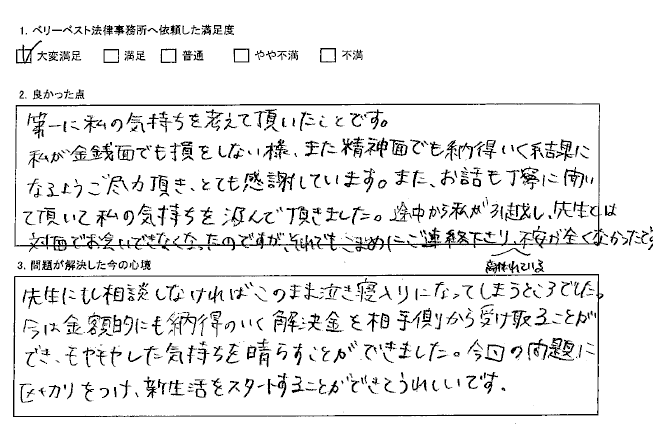 1. ベリーベスト法律事務所へ依頼した満足度
大変満足 満足 普通 やや不満 不満
2. 良かった点
第一に私の気持ちを考えて頂いたことです。
私が金銭面でも損をしない様、また精神面でも納得いく結果に
なるようご尽力頂き、とても感謝しています。また、お話も丁寧に聞い
て頂いて私の気持ちを汲んで頂きました。途中から私が引越し、先生とは
対面でお会いできなくなったのですが、それでもこまめにご連絡下さり、不安が全くなかったです
離れている
3. 問題が解決した今の心境
先生にもし相談しなければこのまま泣き寝入りになってしまうところでした。
今は金額的にも納得のいく解決金を相手側から受け取ることが
でき、モヤモヤした気持ちを晴らすことができました。今回の問題に
区切りをつけ、新生活をスタートすることができてうれしいです。